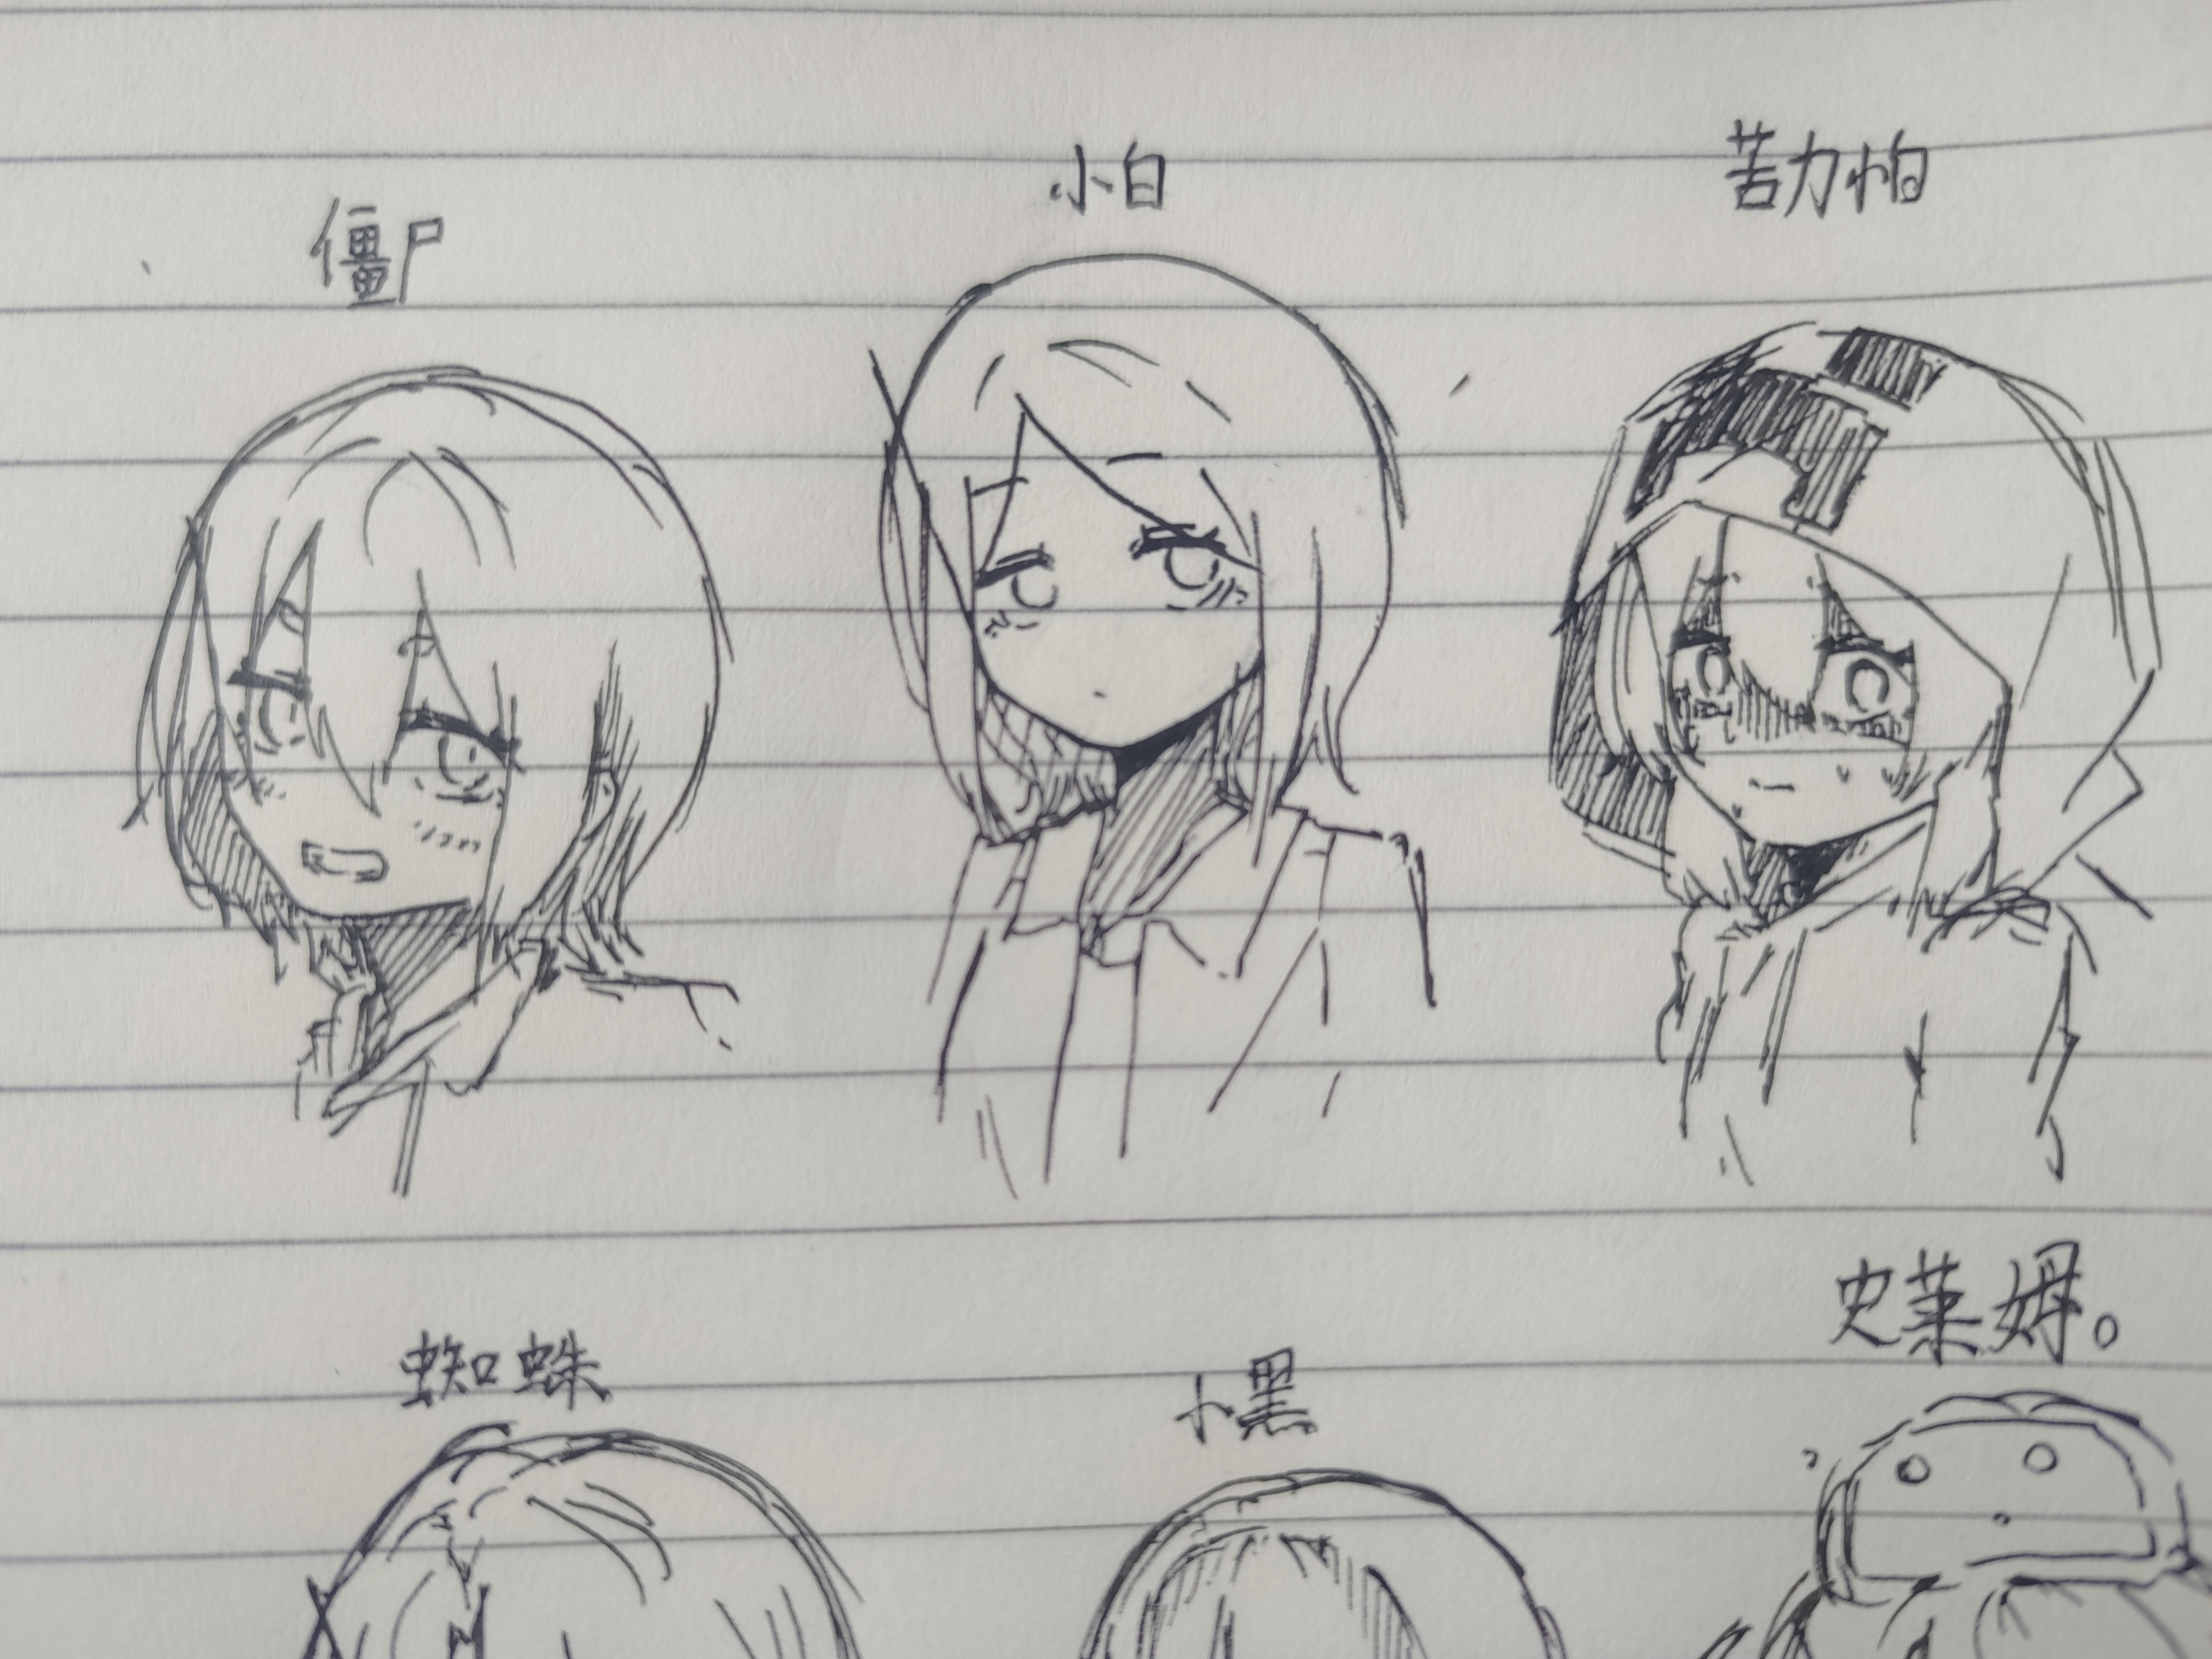 僵尸
小白
苦力怕
蜘蛛
小黑
史莱姆。